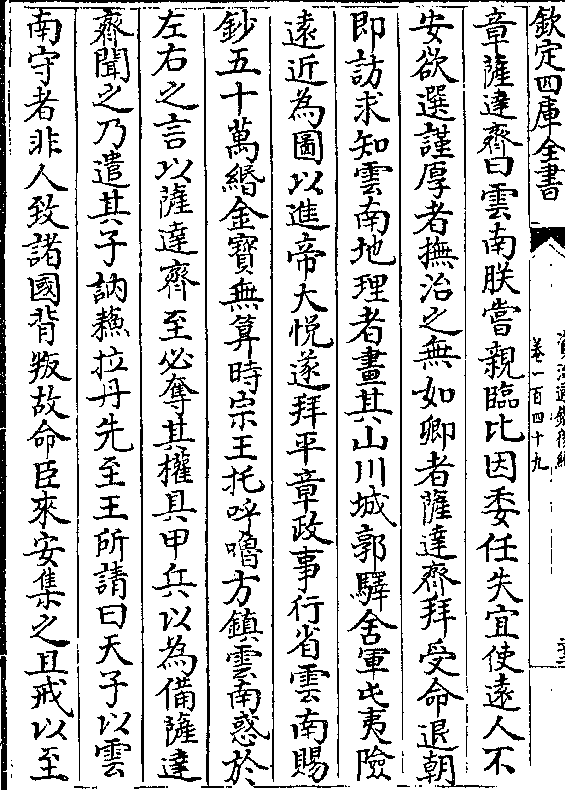 欽定四庫全書
資治通鑑後編
卷一百四十九
章薩達齊曰雲南朕嘗親臨比因委任失宜使遠人不
安欲選謹厚者撫治之無如卿者薩達齊拜受命退朝
即訪求知雲南地理者畫其山川城郭驛舍軍屯夷險
遠近為圖以進帝大悅遂拜平章政事行省雲南賜
鈔五十萬緡金寶無算時宗王托呼嚕方鎮雲南惑於
左右之言以薩達齊至必奪其權具甲兵以為備薩達
齊聞之乃遣其子訥蘇拉丹先至王所請曰天子以雲
南守者非人致諸國背叛故命臣來安集之且戒以至